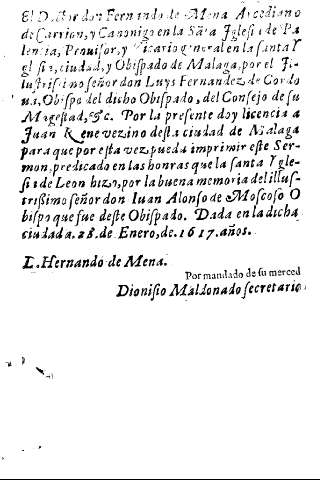 El Doctor don Fernando de Mena Arcediano
de Carrion, y Canonigo en la Sãta Iglesia de Pa
lencia, Prouisor, y Vicario general en la santa Y
glesia, ciudad, y Obispado de Malaga, por el Ji-
lustrissimo señor don Luys Fernandez de Cordo
ua, Obispo del dicho Obispado, del Consejo de su
Magestad, &c. Por la presente doy licencia a
Juan Rene vezino desta ciudad de Malaga
para que por esta vez pueda imprimir este Ser-
mon, predicado en las honras que la santa Ygle-
sia de Leon hizo, por la buena memoria del illus-
trissimo señor don Iuan Alonso de Moscoso O
bispo que fue deste Obispado. Dada en la dicha
ciudad a. 28. de Enero, de. 1617. años.
L. Hernando de Mena.
Por mandado de su merced
Dionisio Maldonado secretario